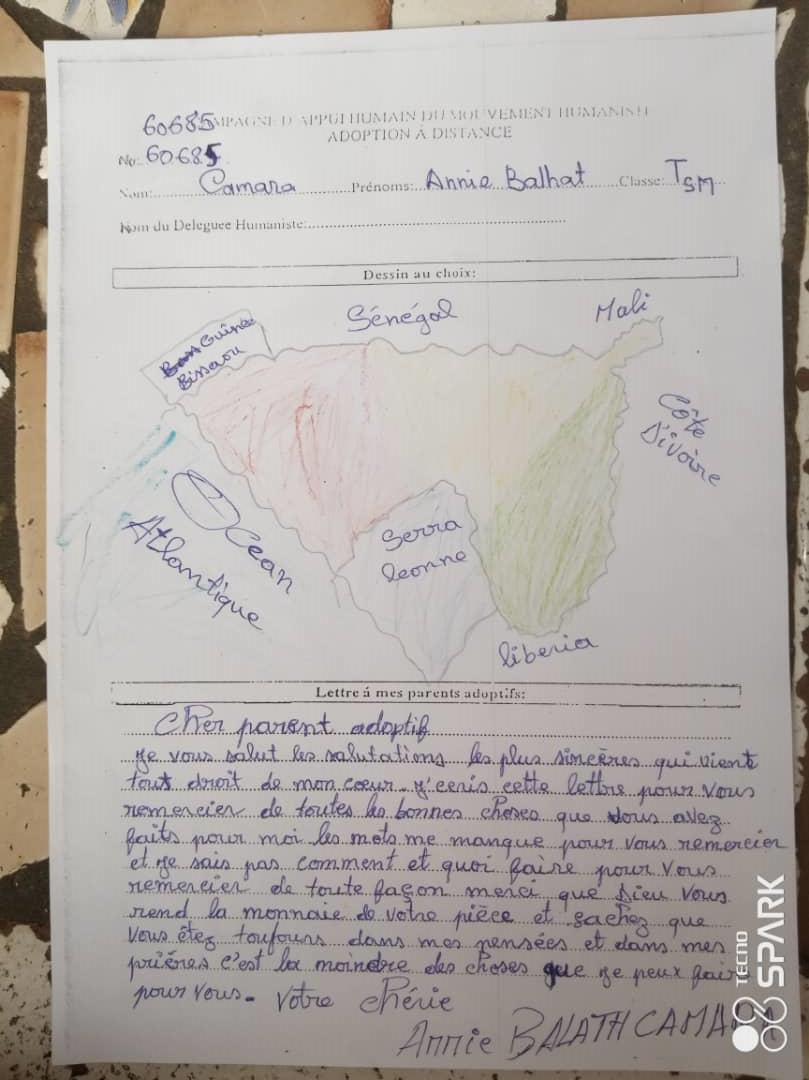 60685MPAGNE D'APPUI HUMAIN DU MOUVEMENT HUMANISTE
ADOPTION À DISTANCE
No: 60685
Nom: Camara Prénoms: Annie Balhat Classe: TSM
Nom du Deleguee Humaniste:
Dessin au choix:
Guinée
Bissaou
Sénégal
Mali
Côte
D'ivoire
Océan
Atlantique
Serra
leonne
liberia
Lettre á mes parents adoptifs:
Cher parent adoptif
je vous salut les salutations les plus sincères qui vient
tout droit de mon cœur. j'ecris cette lettre pour vous
remercier de toutes les bonnes choses que vous avez
faits pour moi les mots me manque pour vous remercier
et je sais pas comment et quoi faire pour vous
remercier de toute façon merci que Dieu vous
rend la monnaie de votre pièce et sachez que
vous êtez toujours dans mes pensées et dans mes
prières c'est la moindre des choses que je peux faire
pour vous. Votre chérie
Annie BALATH CAMARA
TECNO
SPARK